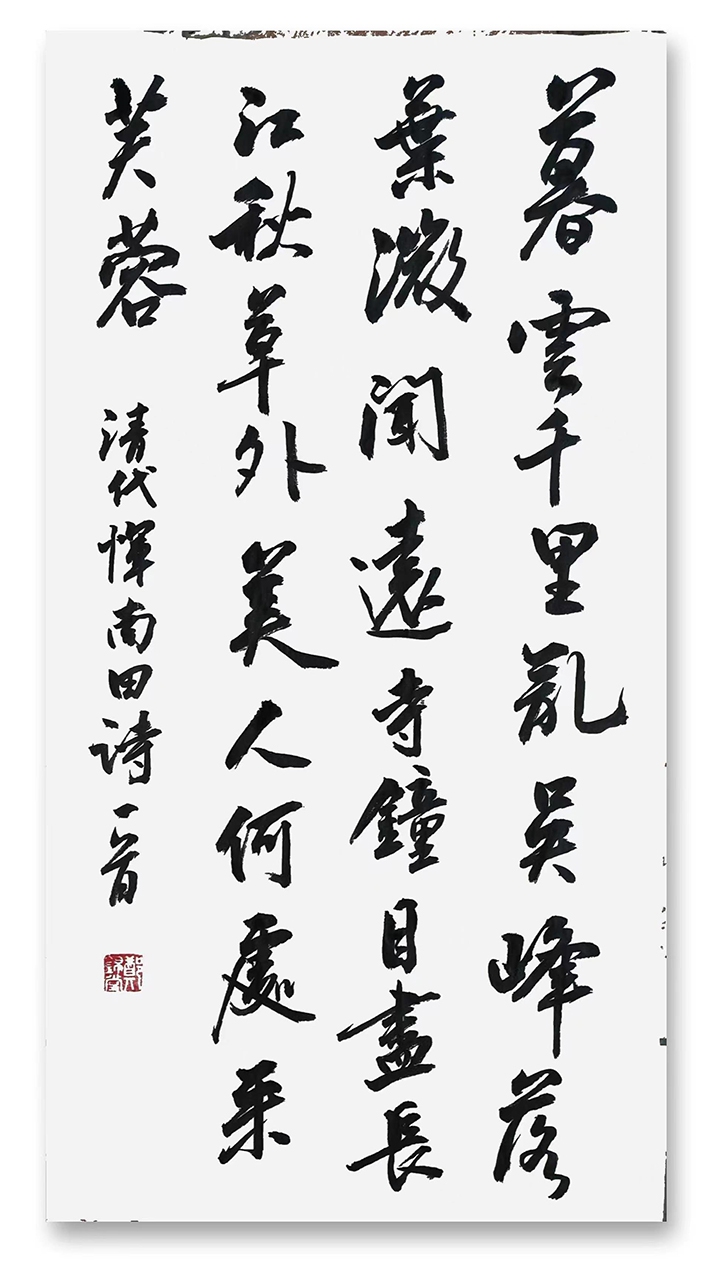 暮雲千里亂吳峰落
葉微聞遠寺鐘目盡長
江秋草外美人何處采
芙蓉 清代惲南田詩一首